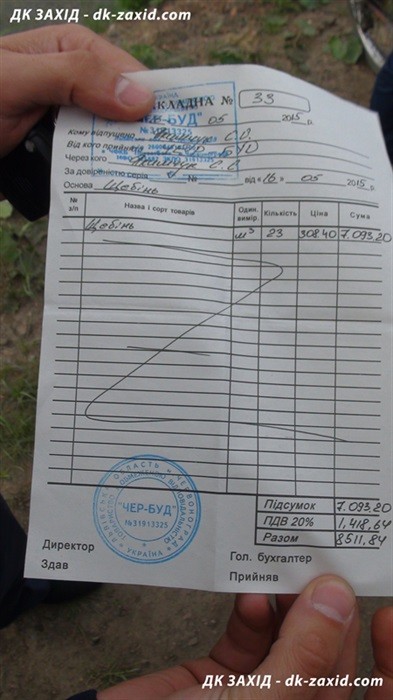 ДК ЗАХІД - dk-zaxid.com
НАКЛАДНА № 33
"ЧЕР-БУД" 05 2015 р.
№31913325
Кому відпущено С.О.
Від кого прийнято БУД
Через кого
За довіренністю серія № від «16» 05 2015 р.
Основа Щебінь
№ з/п Назва і сорт товарів Один. вимір. Кількість Ціна Сума
Щебінь м³ 23 308.40 7.093,20
ЛЬВІВСЬКА ОБЛАСТЬ * ЧЕРВОНОГРАД
ТОВАРИСТВО З ОБМЕЖЕНОЮ ВІДПОВІДАЛЬНІСТЮ
"ЧЕР-БУД"
№31913325
* УКРАЇНА *
Підсумок 7.093,20
ПДВ 20% 1,418,64
Разом 8511,84
Директор Гол. бухгалтер
Здав Прийняв
ДК ЗАХІД - dk-zaxid.com